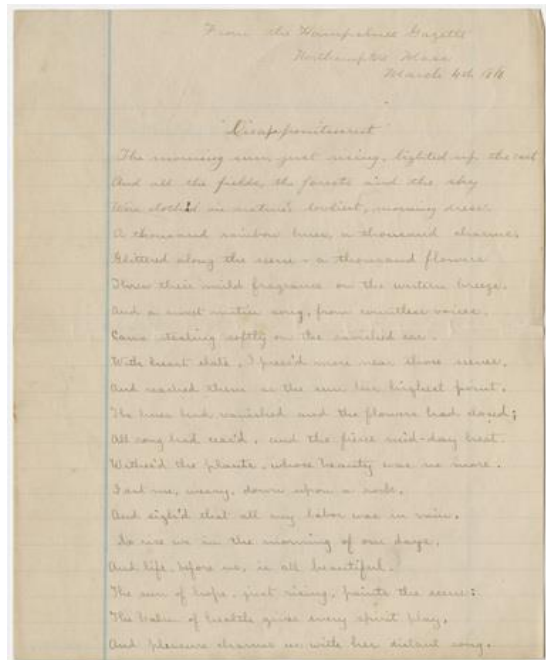 From the Hampshire Gazette
Northampton Mass
March 4th
"Disappointment"
The morning sun, just rising, lighted up the east
And all the fields, the forests and the sky
Were clothed in nature's loveliest, morning dress
A thousand rainbow hues, a thousand charms
Glittered along the scene - a thousand flowers
Threw their mild fragrance on the western breeze.
And a sweet matin song, from countless voices,
Came stealing softly on the ravished ear.
With heart elate, I press'd more near those scenes,
And reached them as the sun her highest point.
The hues had vanished and the flowers had closed;
All song had ceas'd, and the fierce mid-day heat
Wither'd the plants, whose beauty was no more.
I sat me, weary, down upon a rock,
And sigh'd that all my labor was in vain.
So rise we in the morning of our days.
And life, before us, is all beautiful.
The sun of hope, just rising, paints the scene:
The balm of health gives every spirit play,
And pleasure charms us with her distant song.